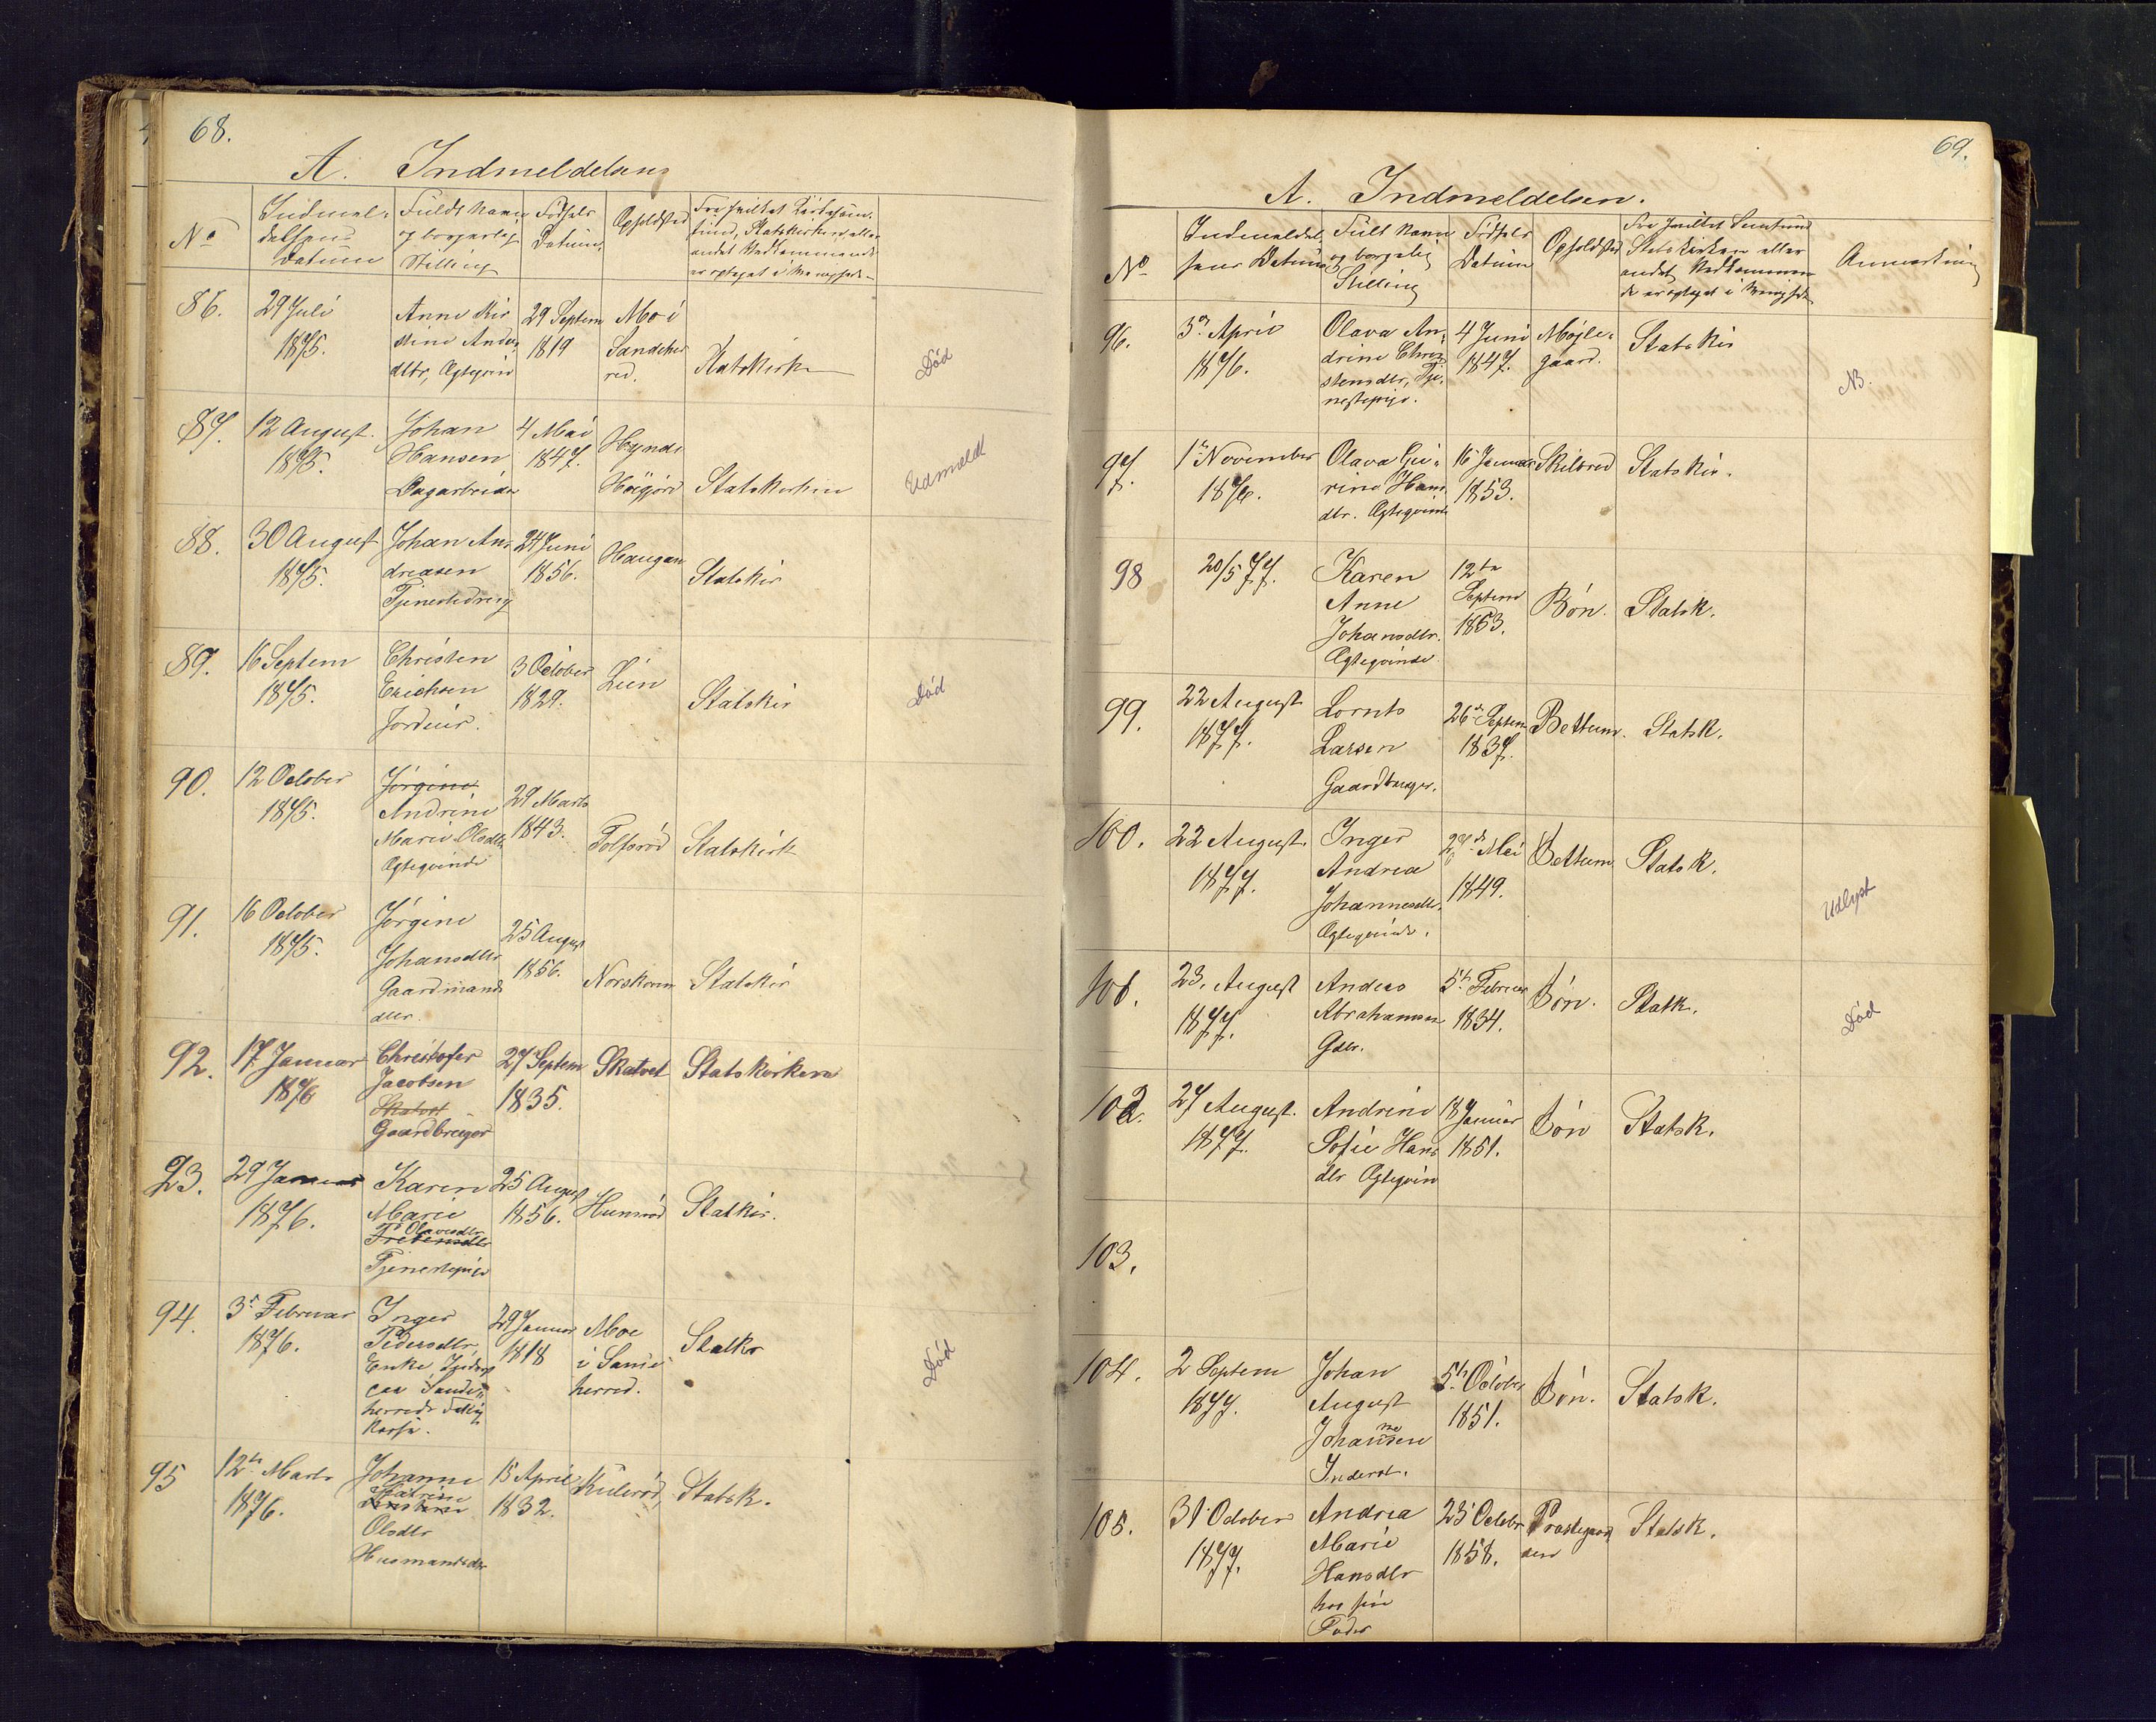 68.
A. Indmeldelsen
No
Indmel-
delsens
Datum
Fuldt Navn
og borgerlig
Stilling
Fødsels
Datum
Opholdsted
Fra hvilket Kirkesam-
fund, Statskirken eller
andet Vedkommende
er optaget i Menighede-
86.
29 Juli
1875.
Anne Kir
stine Anders
dtr, Ægteqvin
29 Septem
1819
Mo i
Sandeher
red.
Statskirke
Død
87.
12 August.
1875.
Johan
Hansen
Dagarbeider
4 Mai
1847.
Høigjord
Statskirken
Udmeldt
88.
30 August
1875.
Johan An-
dreasen
Tjenestedreng
24 Juni
1856.
Haugan
Statskir
89.
16 Septem
1875.
Christen
Erichsen
Jordeier.
3 October
1829.
Lien
Statskir
Død
90.
12 October
1875.
Jørgine
Andrine
Marie Olsdtr
Ægteqvinde
29 Marts
1843.
Tolfsrød
Statskirk
91.
16 October
1875.
Jørgine
Johansdtr
Gaardmands
dtr.
25 August
1856.
Norskoven
Statskir
92.
17 Januar
1876
Christofer
Jacobsen
Skatvet
Gaardbruger
27 Septem
1835.
Skatvet
Statskirken
93.
29 Januar
1876.
Karen
Marie
Olavesdtr
Tjenestepige
25 August
1856.
Humrød
Statkir.
94.
3 Februar
1876.
Inger
Pedersdtr,
Enke, Inders
paa Sande-
herreds Fattig
Kasse.
29 Januar
1818
Moe
i Sande
herred.
Statkr
Død
95
12te Marts
1876.
Johanne
Katrine
Olsdtr
Husmandsdtr
15 April
1832.
Kulerød,
Statsk.
69.
A. Indmeldelsen.
No
Indmeldel-
sens Datum
Fult Navn
og borgelig
Stilling
Fødsels
Datum
Opholdsted
Fra hvilket Samfund
Statskirken eller
andet Vedkommen
de er optaget i Menighede
Anmerkning
96.
3die April
1876.
Olava An-
drine Chri
stensdtr, Tje-
nestepige.
4 Juni
1847.
Møjle-
gaard.
Statskir
NB.
97.
1ste November
1876.
Olava Gu-
rine Hans
dtr. Ægteqvinde
16 Januar
1853.
Skilsrød
Statskir.
98
20/5 77.
Karen
Anne
Johansdtr.
Ægteqvinde
12te
Septem
1853.
Bøn.
Statsk.
99.
22 August
1877.
Lornts
Larsen
Gaardbruger.
26de Septem
1837.
Bettum.
Statsk.
100.
22 August.
1877.
Inger
Andrea
Johannesdtr.
Ægteqvinde.
27de Mai
1849.
Bettum
Statsk.
Udlyst
101.
23. August
1877.
Anders
Abrahamsen
Gdbr.
5te Februar
1834.
Bøn.
Statk.
Død
102.
27 August.
1877.
Andrine
Sofie Hans
dtr Ægteqvin
18 Januar
1851.
Bøn
Statsk.
103.
104.
2 Septem
1877.
Johan
August
Johansen
Inderst.
5te October
1851.
Bøn.
Statsk.
105.
31 October
1877.
Andrea
Marie
Hansdtr
hos sin
Fader
23 Octobr
1858.
Prestegaar
den
Statsk.